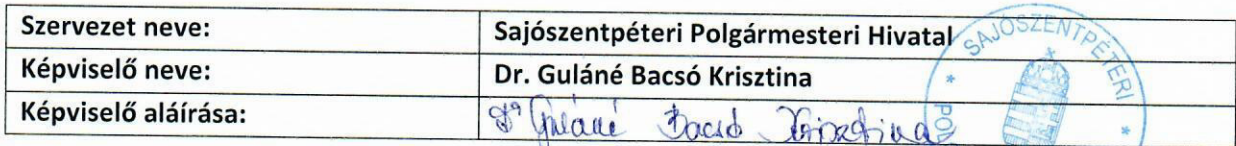 Szervezet neve: Sajószentpéteri Polgármesteri Hivatal
Képviselő neve: Dr. Guláné Bacsó Krisztina
Képviselő aláírása: Dr Guláné Bacsó Krisztina
SAJÓSZENTPÉTERI